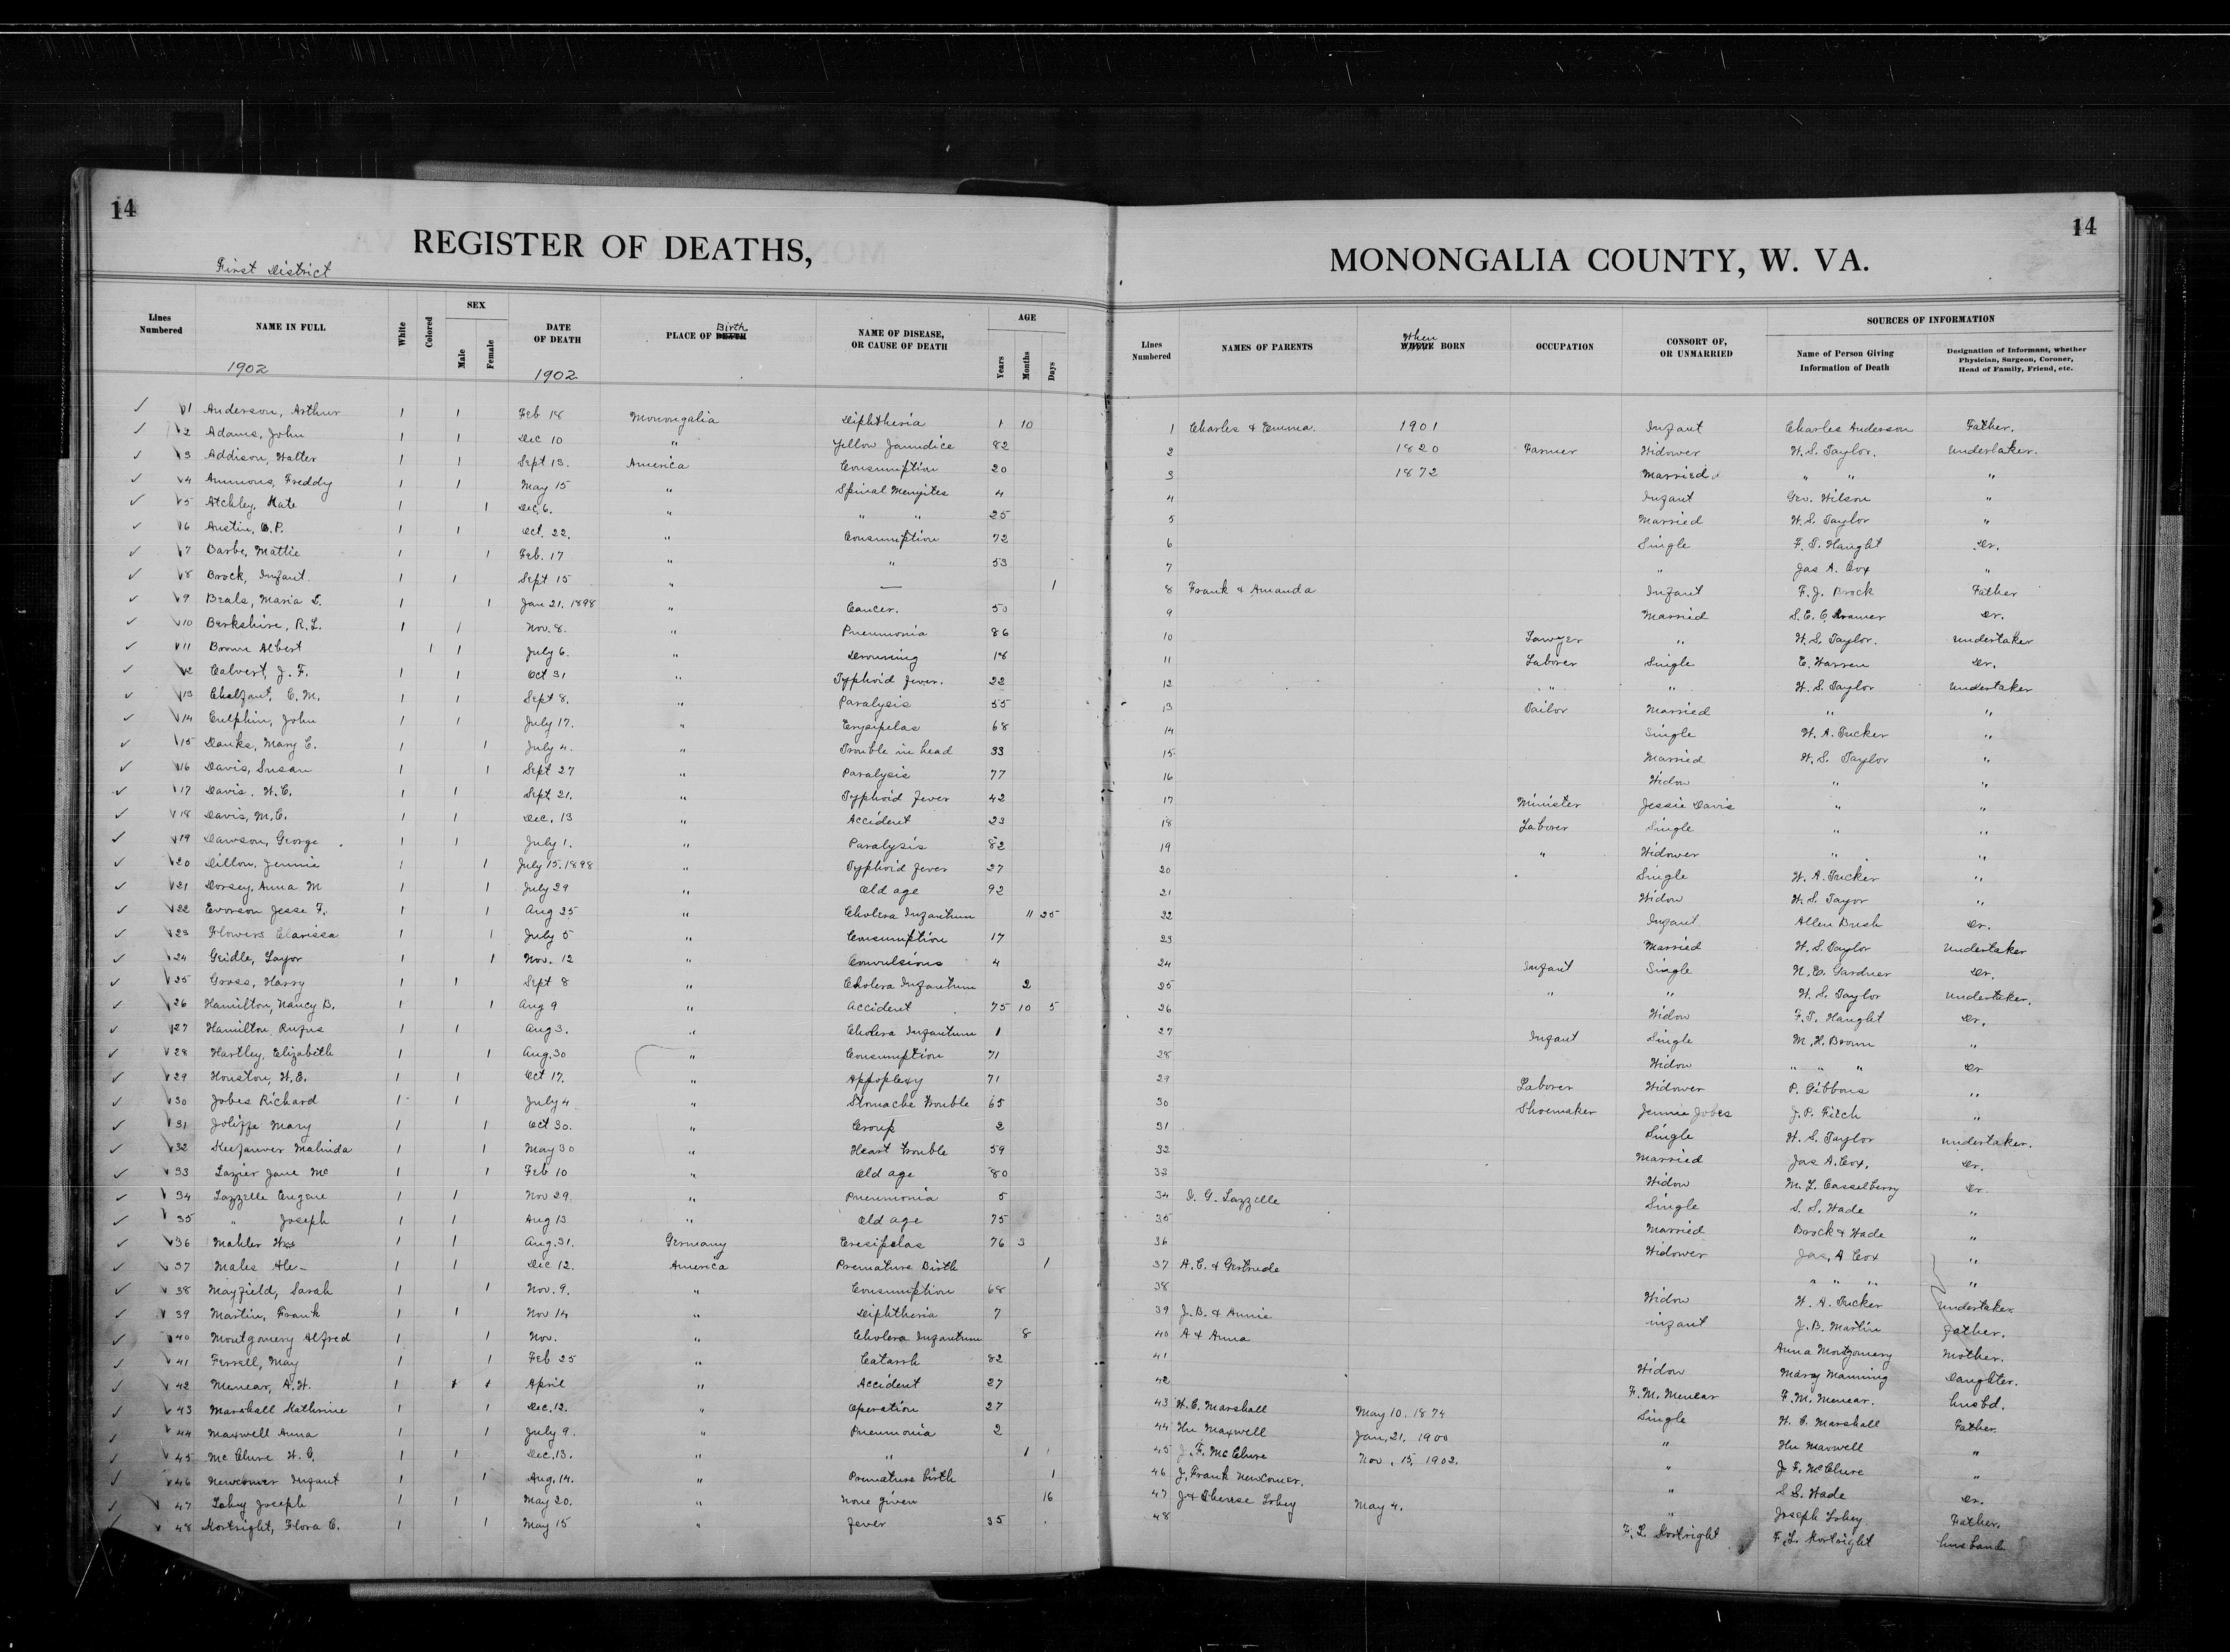 14
REGISTER OF DEATHS,
First District
Lines Numbered NAME IN FULL White Colored SEX Male Female DATE OF DEATH PLACE OF DEATH Birth NAME OF DISEASE, OR CAUSE OF DEATH AGE Years Months Days
1902 1902
1 Anderson, Arthur 1 1 Feb 18 Monongalia Diphtheria 1 10
2 Adams, John 1 1 Dec 10 " Yellow Jaundice 82
3 Addison, Walter 1 1 Sept 13. America Consumption 20
4 Ammons, Freddy 1 1 May 15 " Spinal Mengites 4
5 Atchley, Kate 1 1 Dec. 6. " " " 25
6 Austin, O.P. 1 1 Oct. 22. " Consumption 72
7 Barbe, Mattie 1 1 Feb. 17 " " 53
8 Brock, Infant. 1 1 Sept 15 " — 1
9 Beals, Maria D. 1 1 Jan 21. 1898 " Cancer. 50
10 Berkshire, R.L. 1 1 Nov. 8. " Pneumonia 86
11 Brown Albert 1 1 July 6. " Drowning 18
12 Calvert, J. F. 1 1 Oct 31 " Typhoid fever. 22
13 Chalfant, C. M. 1 1 Sept 8. " Paralysis 55
14 Culphin, John 1 1 July 17. " Erysipelas 68
15 Danks, Mary C. 1 1 July 4. " Trouble in head 33
16 Davis, Susan 1 1 Sept 27 " Paralysis 77
17 Davis, W.C. 1 1 Sept 21. " Typhoid fever 42
18 Davis, M.C. 1 1 Dec. 13 " Accident 23
19 Dawson, George 1 1 July 1. " Paralysis 82
20 Dillon, Jennie 1 1 July 15. 1898 " Typhoid fever 27
21 Dorsey, Anna M 1 1 July 29 " Old age 92
22 Everson Jesse F. 1 1 Aug 25 " Cholera Infantum 11 25
23 Flowers Clarissa 1 1 July 5 " Consumption 17
24 Gridle, Layor 1 1 Nov. 12 " Convulsions 4
25 Gross, Harry 1 1 Sept 8 " Cholera Infantum 2
26 Hamilton, Nancy B. 1 1 Aug 9 " Accident 75 10 5
27 Hamilton Rufus 1 1 Aug 3. " Cholera Infantum 1
28 Hartley, Elizabeth 1 1 Aug. 30 " Consumption 71
29 Houston, W.E. 1 1 Oct 17. " Appoplexy 71
30 Jobes Richard 1 1 July 4 " Stomache trouble 65
31 Joliffe Mary 1 1 Oct 30. " Croup 2
32 Keefauver Malinda 1 1 May 30 " Heart trouble 59
33 Lazier Jane Mc 1 1 Feb 10 " Old age 80
34 Lazzelle Eugene 1 1 Nov 29. " Pneumonia 5
35 " Joseph 1 1 Aug 13 " Old age 75
36 Mahler Wm 1 1 Aug. 31. Germany Eresipelas 76 3
37 Males Ale- 1 1 Dec 12. America Premature Birth 1
38 Mayfield, Sarah 1 1 Nov. 9. " Consumption 68
39 Martin, Frank 1 1 Nov 14 " Diphtheria 7
40 Montgomery Alfred 1 1 Nov. " Cholera Infantum 8
41 Ferrell, May 1 1 Feb 25 " Catarrh 82
42 Menear, A.H. 1 1 1 April " Accident 27
43 Marshall Kathrine 1 1 Dec. 12. " Operation 27
44 Maxwell Anna 1 1 July 9. " Pneumonia 2
45 McClure H. G. 1 1 Dec. 13. " " 1 1
46 Newcomer Infant 1 1 Aug. 14. " Premature birth 1
47 Lohey Joseph 1 1 May 20. " None given 16
48 Kortright, Flora C. 1 1 May 15 " fever 35
14
MONONGALIA COUNTY, W. VA.
Lines Numbered NAMES OF PARENTS WHERE When BORN OCCUPATION CONSORT OF, OR UNMARRIED SOURCES OF INFORMATION Name of Person Giving Information of Death Designation of Informant, whether Physician, Surgeon, Coroner, Head of Family, Friend, etc.
1 Charles & Emma. 1901 Infant Charles Anderson Father.
2 1820 Farmer Widower W.S. Taylor. Undertaker.
3 1872 Married. " " "
4 Infant Geo. Wilson "
5 Married W.S. Taylor "
6 Single F.T. Haught Dr.
7 " Jas A. Cox "
8 Frank & Amanda Infant F.J. Brock Father
9 Married S.E.C. Kramer Dr.
10 Lawyer " W.S. Taylor. Undertaker
11 Laborer Single E. Warren Dr.
12 " " W.S. Taylor Undertaker
13 Tailor Married " "
14 Single W.A. Tucker "
15 Married W.S. Taylor "
16 Widow " "
17 Minister Jessie Davis " "
18 Laborer Single " "
19 " Widower " "
20 Single W.A. Tucker "
21 Widow W.S. Tayor "
22 Infant Allen Bush Dr.
23 Married W.S. Taylor Undertaker
24 Infant Single N.C. Gardner Dr.
25 " " W.S. Taylor Undertaker.
26 Widow F.T. Haught Dr.
27 Infant Single M.H. Brown "
28 Widow " " " Dr
29 Laborer Widower P. Gibbons "
30 Shoemaker Jennie Jobes J.P. Fitch "
31 Single W.S. Taylor undertaker.
32 Married Jas A. Cox. Dr.
33 Widow M.L. Casselberry Dr.
34 D. G. Lazzelle Single S.S. Wade "
35 Married Brock & Wade "
36 Widower Jas. A Cox "
37 A.C. & Gertrude " " " "
38 Widow W.A. Tucker Undertaker.
39 J.B. & Annie infant J.B. Martin father.
40 A & Anna Anna Montgomery Mother.
41 Widow Mary Manning Daughter.
42 F.M. Menear F.M. Menear. husbd.
43 W.C. Marshall May 10. 1874 Single W.C. Marshall Father.
44 Hu Maxwell Jan, 21, 1900 " Hu Maxwell "
45 J.F. McClure Nov. 15, 1902. " J.F. McClure "
46 J. Frank Newcomer. " S.S. Wade Dr.
47 J & Therese Lohey May 4. " Joseph Lohey Father.
48 F.L. Kortright F.L. Kortright husband